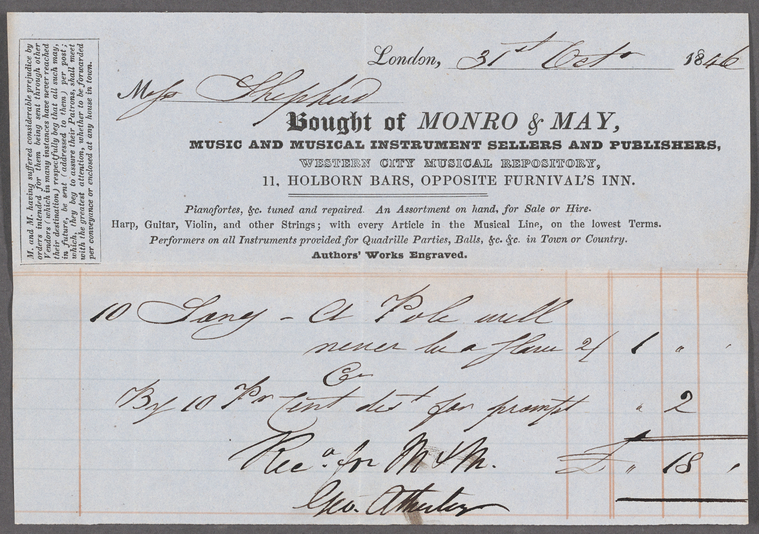 M. and M. having suffered considerable prejudice by
orders intended for them being sent through other
Vendors (which in many instances have never reached
their destination) respectfully beg that all such may,
in future, be sent (addressed to them) per post;
which, they beg to assure their Patrons, shall meet
with the greatest attention, whether to be forwarded
per conveyance or enclosed at any house in town.
London, 31st Octr 1846
Mess Shepherd
Bought of MONRO & MAY,
MUSIC AND MUSICAL INSTRUMENT SELLERS AND PUBLISHERS,
WESTERN CITY MUSICAL REPOSITORY,
11, HOLBORN BARS, OPPOSITE FURNIVAL'S INN.
Pianofortes, &c. tuned and repaired. An Assortment on hand, for Sale or Hire.
Harp, Guitar, Violin, and other Strings; with every Article in the Musical Line, on the lowest Terms.
Performers on all Instruments provided for Quadrille Parties, Balls, &c. &c. in Town or Country.
Authors' Works Engraved.
10 Song - A Pole will
never be a slave 2/ 1 " "
Cr
By 10 Pr Cent dist for prompt " 2
Recd for M & M. £ " 18 "
Geo. Atherley